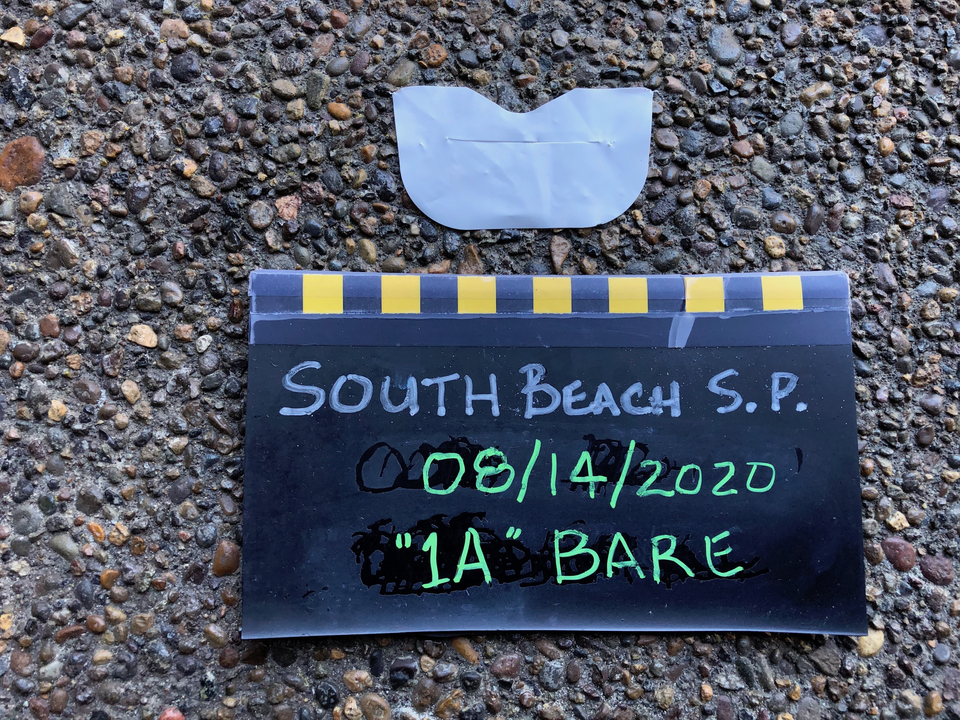 SOUTH BEACH S.P.
08/14/2020
"1A" BARE